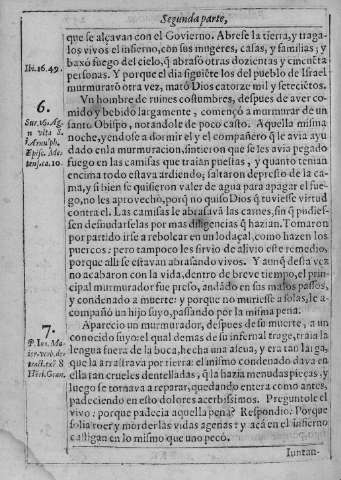 Segunda parte,
que se alçavan con el Govierno. Abrese la tierra, y traga-
los vivos el infierno, con sus mugeres, casas, y familias; y
baxò fuego del cielo, q̃ abrasò otras dozientas y cincuẽta
Ibi. 16. 49.
personas. Y porque el dia siguiẽte los del pueblo de Israel
murmuraró otra vez, matò Dios catorze mil y setecietos.
6.
Vn hombre de ruines costumbres, despues de aver co-
mido y bebido largamente, començò a murmurar de un
santo Obispo, notandole de poco casto. Aquella misma
noche, yendose a dormir el y el compañero q̃ le avia ayu
dado en la murmuracion, sintieron que se les avia pegado
fuego en las camisas que traian puestas, y quanto tenian
encima todo estava ardiendo; saltaron depresto de la ca-
ma, y si bien se quisieron valer de agua para apagar el fue-
go, no les aprovechò, porq̃ no quiso Dios q̃ tuviesse virtud
contra el. Las camisas le abrasavã las carnes, sin q̃ pudies-
sen desnudarselas por mas diligencias q̃ hazian. Tomaron
por partido irse a rebolcar en un lodaçal, como hazen los
puercos; pero tampoco les sirvio de alivio este remedio,
porque alli se estavan abrasando vivos. Y aunq̃ desta vez
no acabaron con la vida, dentro de breve tiempo, el prin-
cipal murmurador fue preso, andãdo en sus malos passos,
y condenado a muerte: y porque no muriesse a solas, le a-
compañò un hijo suyo, passando por la misma pena.
7.
Aparecio un murmurador, despues de su muerte, a un
conocido suyo: el qual demas de su infernal trage, traia la
lengua fuera de la boca, hecha una ascua, y era tan larga,
que la arrastrava por tierra: el mismo condenado dava en
ella tan crueles dentelladas, q̃ la hazia menudas pieças, y
luego se tornava a reparar, quedando entera como antes,
padeciendo en esto dolores acerbissimos. Preguntole el
vivo: porque padecia aquella pena? Respondio: Porque
solia roer y morder las vidas agenas: y acà en el infierno
castigan en lo mismo que uno pecò.
Iuntan-